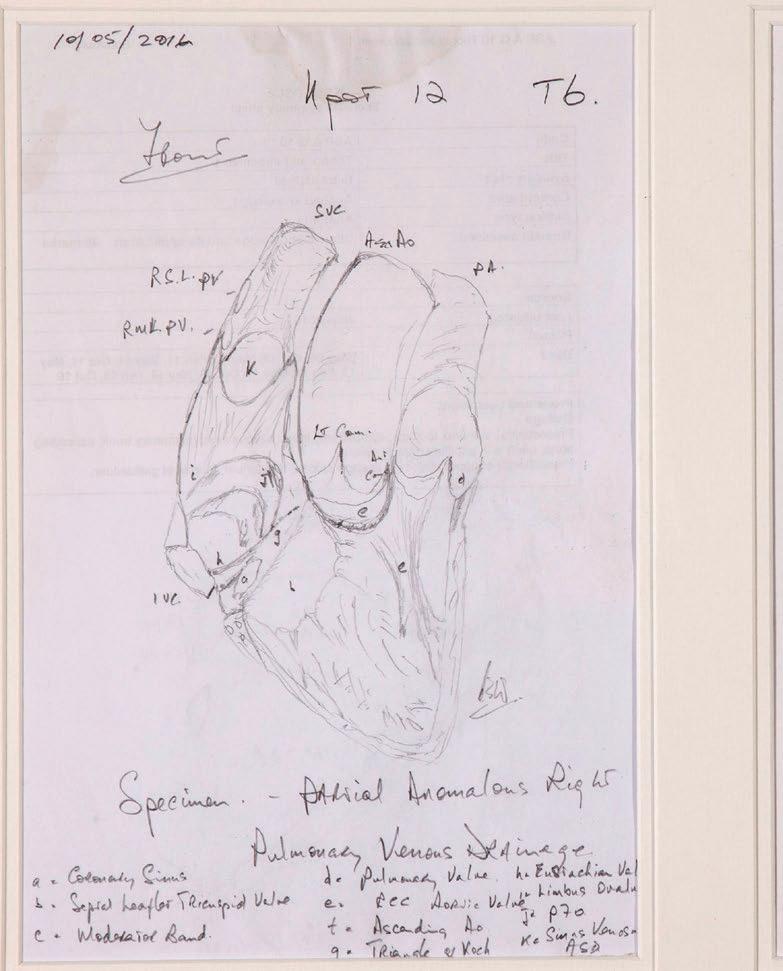 10/05/2016
Kpat 12 T6.
Front
SVC
Asc Ao
PA.
R.S.L. PV
R.M.L. PV.
K
Lt Com.
Ant
Com
i
J
d
e
g
h
a
b
c
IVC.
Specimen. - Partial Anomalous Right
Pulmonary Venous Drainage
a = Coronary Sinus
b = Septal Leaflet Tricuspid Valve
c = Moderator Band.
d = Pulmonary Valve.
e = Aortic Valve
f = Ascending Ao
g = Triangle of Koch
h = Eustachian Val
i = Limbus Ovalis
J = PFO
K = Sinus Venosus
ASD